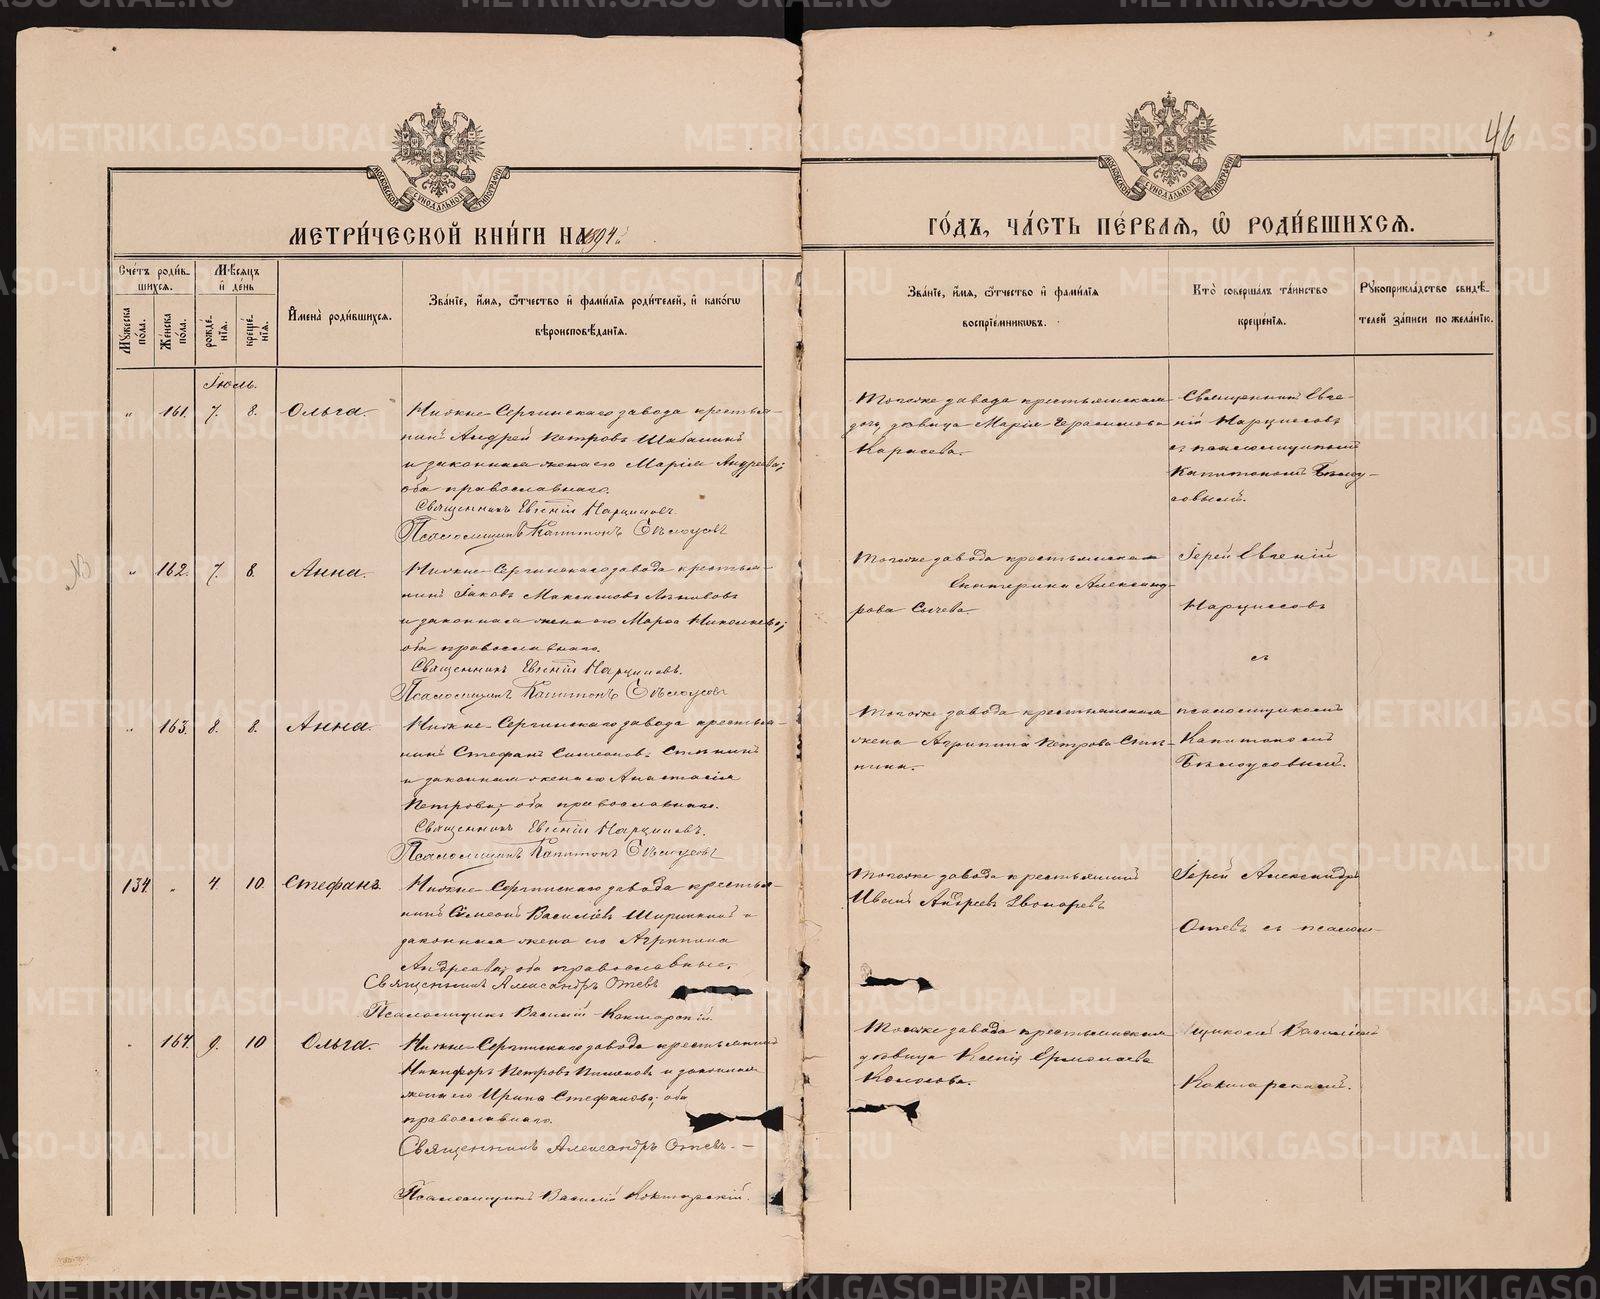 46
МЕТРИ́ЧЕСКОЙ КНИ́ГИ НА 1894 й
ГО́ДЪ, ЧА́СТЬ ПЕ́РВАѦ, Ѿ РОДИ́ВШИХСѦ.
МОСКОВСКОЙ СѴНОДАЛЬНОЙ ТИПОГРАФІИ
МОСКОВСКОЙ СѴНОДАЛЬНОЙ ТИПОГРАФІИ
Сче́тъ роди́вшихсѧ.
Мꙋ́жеска по́ла.
Же́нска по́ла.
Мѣ́сѧцъ и҆ де́нь
рожде́нїѧ.
креще́нїѧ.
И҆мена̀ роди́вшихсѧ.
Зва́нїе, и҆́мѧ, ѻ҆́тчество и҆ фами́лїѧ роди́телей, и҆ како́гѡ
вѣроисповѣ́данїѧ.
Зва́нїе, и҆́мѧ, ѻ҆́тчество и҆ фами́лїѧ
воспрїе́мникѡвъ.
Кто̀ соверша́лъ та́инство
креще́нїѧ.
Рꙋкоприкла́дство свидѣ́телей за́писи по жела́нїю.
Іюль.
" 161. 7. 8. Ольга.
Нижне-Сергинскаго завода крестья-
нинъ Андрей Петровъ Шабалинъ
и законная жена его Марія Андреева;
оба православнаго.
Священникъ Евгеній Нарциссовъ.
Псаломщикъ Капитонъ Бѣлоусовъ
Тогоже завода крестьянская
дочь дѣвица Марія Герасимова
Карасева.
Священникъ Евге-
ній Нарциссовъ
съ псаломщикомъ
Капитономъ Бѣлоу-
совымъ.
" 162. 7. 8. Анна.
Нижне-Сергинскаго завода крестья-
нинъ Іаковъ Максимовъ
и законная жена его Николаева;
оба православнаго.
Священникъ Евгеній Нарциссовъ.
Псаломщикъ Капитонъ Бѣлоусовъ
Тогоже завода крестьянская
Екатерина Александ-
рова Сычева.
Іерей Евгеній
Нарциссовъ
съ
" 163. 8. 8. Анна.
Нижне-Сергинскаго завода крестья-
нинъ Стефанъ Симеоновъ
и законная жена его Анастасія
Петрова; оба православнаго.
Священникъ Евгеній Нарциссовъ.
Псаломщикъ Капитонъ Бѣлоусовъ
Тогоже завода крестьянская
жена Агрипина Петрова
псаломщикомъ
Капитономъ
Бѣлоусовымъ.
134 " 4. 10. Стефанъ.
Нижне-Сергинскаго завода крестья-
нинъ Симеонъ Василіевъ Ширинкинъ и
законная жена его Агрипина
Андреева; оба православные.
Священникъ Александръ Отевъ
Псаломщикъ Василій Кокшарскій.
Тогоже завода крестьянинъ
Иванъ Андреевъ
Іерей Александръ
Отевъ съ псалом-
" 164. 9. 10 Ольга.
Нижне-Сергинскаго завода крестьянинъ
Никифоръ Петровъ и законная
жена его Ирина Стефанова; оба
православнаго.
Священникъ Александръ Отевъ.
Псаломщикъ Василій Кокшарскій.
Тогоже завода крестьянская
дѣвица Ксенія Ермолаева
Колосова.
щикомъ Василіемъ
Кокшарскимъ.
METRIKI.GASO-URAL.RU